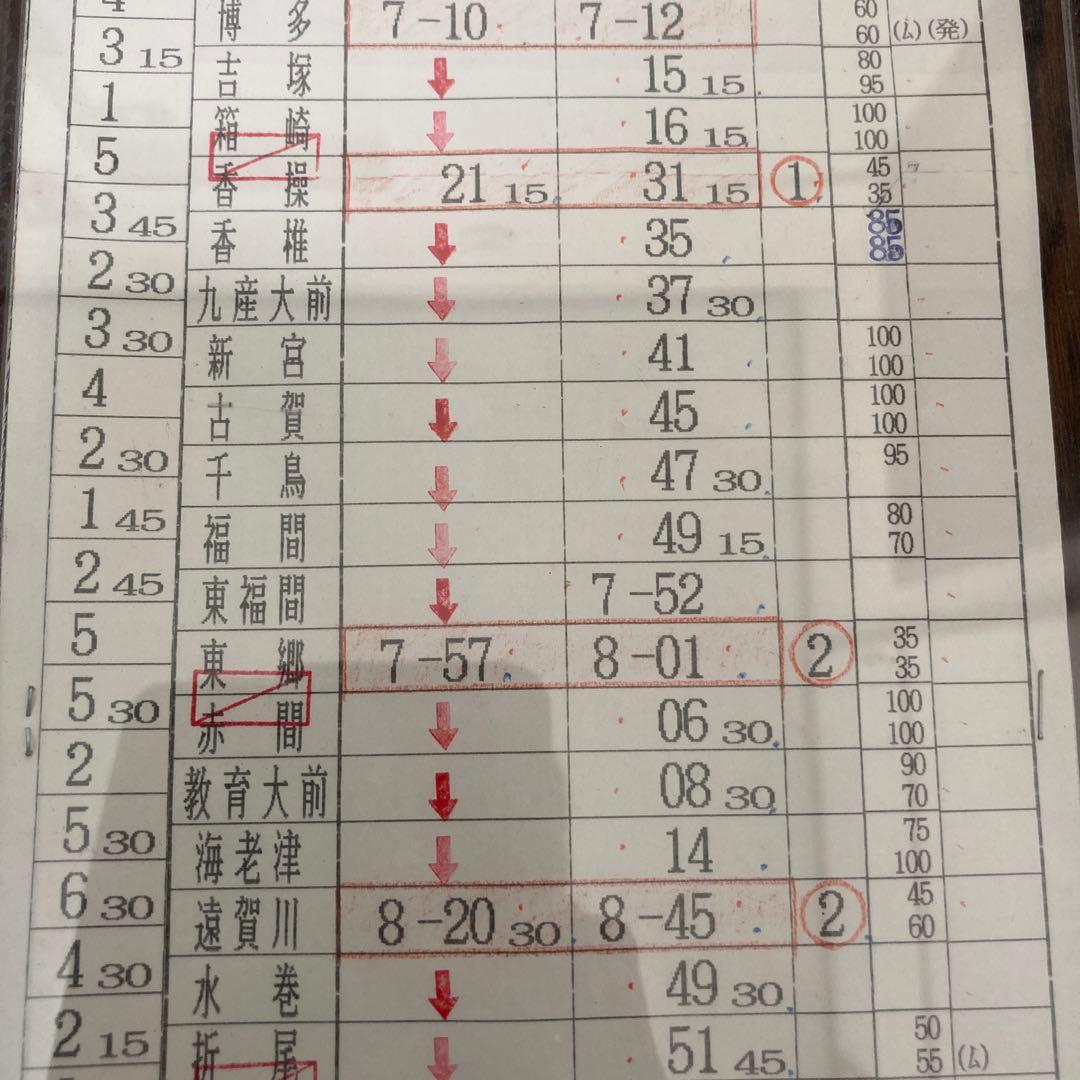 博多 7-10 7-12 60
3 15 60 (ム)(発)
吉塚 15 15 80
1 95
箱崎 16 15 100
5 100
香操 21 15 31 15 ① 45
3 45 35
香椎 35 85
2 30 85
九産大前 37 30
3 30
新宮 41 100
4 100
古賀 45 100
2 30 100
千鳥 47 30 95
1 45
福間 49 15 80
2 45 70
東福間 7-52
5
東郷 7-57 8-01 ② 35
5 30 35
赤間 06 30 100
2 100
教育大前 08 30 90
5 30 70
海老津 14 75
6 30 100
遠賀川 8-20 30 8-45 ② 45
4 30 60
水巻 49 30
2 15
折尾 51 45 50
55 (ム)